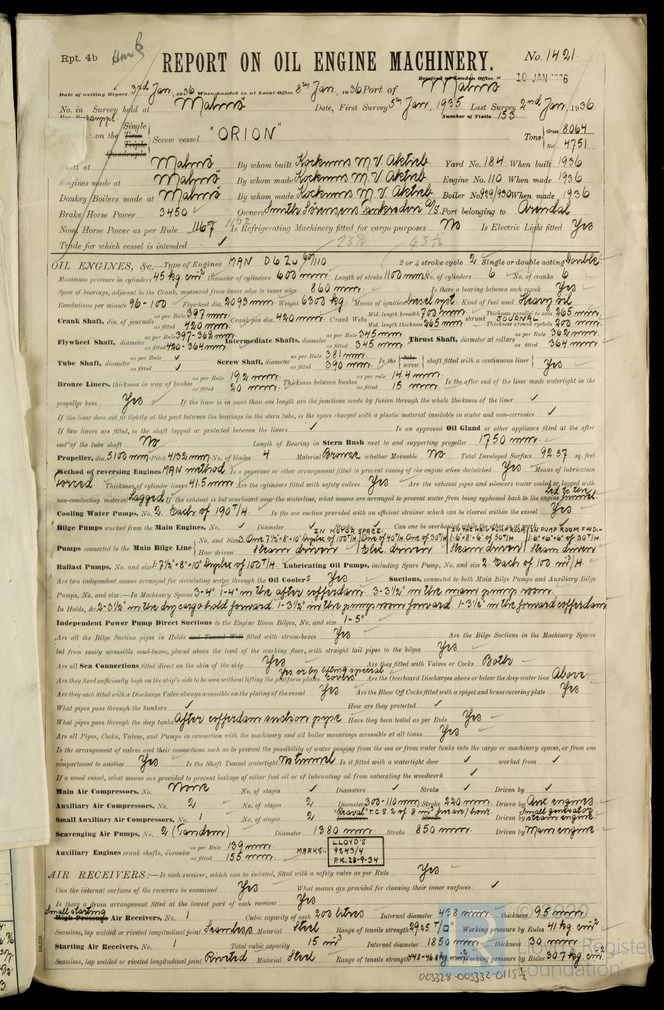 Rpt. 4b
REPORT ON OIL ENGINE MACHINERY.
No. 1421.
Received at London Office
10 JAN 1936
Date of writing Report 3rd Jan, 1936 When handed in at Local Office 8th Jan, 1936 Port of Malmö
No. in Survey held at Malmö Date, First Survey 5th Jan, 1935 Last Survey 2nd Jan, 1936
Number of Visits 153
on the Single Twin Triple Quadruple Screw vessel "ORION" Tons Gross 8064 Net 4751
Built at Malmö By whom built Kockums M V Aktieb. Yard No. 184 When built 1936
Engines made at Malmö By whom made Kockums M V Aktieb. Engine No. 110 When made 1936
Donkey Boilers made at Malmö By whom made Kockums M V Aktieb. Boiler No. 929/930 When made 1936
Brake Horse Power 3450 Owners Port belonging to Arendal
Nom. Horse Power as per Rule 1167 Is Refrigerating Machinery fitted for cargo purposes No Is Electric Light fitted Yes
Trade for which vessel is intended ✓
OIL ENGINES, &c. Type of Engines MAN D6Zu 60/110 2 or 4 stroke cycle 2 Single or double acting Double
Maximum pressure in cylinders 45 kg cm² Diameter of cylinders 600 mm Length of stroke 1100 mm No. of cylinders 6 No. of cranks 6
Span of bearings, adjacent to the Crank, measured from inner edge to inner edge 860 mm Is there a bearing between each crank Yes
Revolutions per minute 96-100 Flywheel dia. 2093 mm Weight 6300 kg Means of ignition Kind of fuel used Heavy oil
Crank Shaft, dia. of journals as per Rule 397 mm as fitted 420 mm Crank pin dia. 420 mm Crank Webs Mid. length breadth 703 mm Mid. length thickness 265 mm Thickness parallel to axis 265 mm shrunk Thickness around eyehole 200 mm
Flywheel Shaft, diameter as per Rule 397-362 mm as fitted 420-364 mm Intermediate Shafts, diameter as per Rule 345 mm as fitted 345 mm Thrust Shaft, diameter at collars as per Rule 362 mm as fitted 364 mm
Tube Shaft, diameter as per Rule ✓ as fitted ✓ Screw Shaft, diameter as per Rule 381 mm as fitted 390 mm Is the tube screw shaft fitted with a continuous liner Yes
Bronze Liners, thickness in way of bushes as per Rule 19.2 mm as fitted 20 mm Thickness between bushes as per Rule 14.4 mm as fitted 15 mm Is the after end of the liner made watertight in the
propeller boss Yes If the liner is in more than one length are the junctions made by fusion through the whole thickness of the liner ✓
If the liner does not fit tightly at the part between the bearings in the stern tube, is the space charged with a plastic material insoluble in water and non-corrosive ✓
If two liners are fitted, is the shaft lapped or protected between the liners ✓ Is an approved Oil Gland or other appliance fitted at the after
end of the tube shaft No Length of Bearing in Stern Bush next to and supporting propeller 1750 mm
Propeller, dia. 5100 mm Pitch 4132 mm No. of blades 4 Material Bronze whether Moveable No Total Developed Surface 92.57 sq. feet
Method of reversing Engines MAN method Is a governor or other arrangement fitted to prevent racing of the engine when declutched Yes Means of lubrication
forced Thickness of cylinder liners 41.5 mm Are the cylinders fitted with safety valves Yes Are the exhaust pipes and silencers water cooled or lagged with
non-conducting material Lagged If the exhaust is led overboard near the waterline, what means are arranged to prevent water being syphoned back to the engine Led to the funnel
Cooling Water Pumps, No. 2. Each of 190 T/H. Is the sea suction provided with an efficient strainer which can be cleared within the vessel Yes
Bilge Pumps worked from the Main Engines, No. ✓ Diameter ✓ Stroke ✓
Pumps connected to the Main Bilge Line No. and Size How driven IN MOTOR SPACE Steam driven Elec. driven Steam driven Steam driven
Ballast Pumps, No. and size 1·7½"×8"×10" Duplex of 100 T/H. Lubricating Oil Pumps, including Spare Pump, No. and size 2. Each of 100 m³/H.
Are two independent means arranged for circulating water through the Oil Cooler Yes Suctions, connected to both Main Bilge Pumps and Auxiliary Bilge
Pumps, No. and size:—In Machinery Spaces 3-4" 1-4" in the after cofferdam 3-3½" in the main pump room
In Holds, &c. 2-3½" in the dry cargo hold forward 1-3½" in the pump room forward 1-3½" in the forward cofferdam
Independent Power Pump Direct Suctions to the Engine Room Bilges, No. and size 1-5"
Are all the Bilge Suction pipes in Holds and Tunnel Well fitted with strum-boxes Yes Are the Bilge Suctions in the Machinery Spaces
led from easily accessible mud-boxes, placed above the level of the working floor, with straight tail pipes to the bilges Yes
Are all Sea Connections fitted direct on the skin of the ship Yes Are they fitted with Valves or Cocks Both
Are they fixed sufficiently high on the ship's side to be seen without lifting the platform plates Yes or by lifting special covers Are the Overboard Discharges above or below the deep water line Above
Are they each fitted with a Discharge Valve always accessible on the plating of the vessel Yes Are the Blow Off Cocks fitted with a spigot and brass covering plate Yes
What pipes pass through the bunkers ✓ How are they protected ✓
What pipes pass through the deep tanks After cofferdam suction pipe Have they been tested as per Rule Yes
Are all Pipes, Cocks, Valves, and Pumps in connection with the machinery and all boiler mountings accessible at all times Yes
Is the arrangement of valves and their connections such as to prevent the possibility of water passing from the sea or from water tanks into the cargo or machinery spaces, or from one
compartment to another Yes Is the Shaft Tunnel watertight No tunnel Is it fitted with a watertight door ✓ worked from ✓
If a wood vessel, what means are provided to prevent leakage of either fuel oil or of lubricating oil from saturating the woodwork ✓
Main Air Compressors, No. None No. of stages ✓ Diameters ✓ Stroke ✓ Driven by ✓
Auxiliary Air Compressors, No. 2 No. of stages 2 Diameters 303-110 mm Stroke 220 mm Driven by Aux engines
Small Auxiliary Air Compressors, No. 1 No. of stages 2 Stroke Driven by
Scavenging Air Pumps, No. 2 (Tandem) Diameter 1380 mm Stroke 850 mm Driven by Main engine
Auxiliary Engines crank shafts, diameter as per Rule 139 mm as fitted 155 mm MARKS:- LLOYD'S 9243/4 P.K. 28-9-34
AIR RECEIVERS:—Is each receiver, which can be isolated, fitted with a safety valve as per Rule Yes
Can the internal surfaces of the receivers be examined Yes What means are provided for cleaning their inner surfaces ✓
Is there a drain arrangement fitted at the lowest part of each receiver Yes
Small starting High Pressure Air Receivers, No. 1 Cubic capacity of each 200 litres Internal diameter 438 mm thickness 9.5 mm
Seamless, lap welded or riveted longitudinal joint Seamless Material Steel Range of tensile strength Working pressure by Rules 41 kg. cm²
Starting Air Receivers, No. 1 Total cubic capacity 15 m³ Internal diameter 1850 mm thickness 30 mm
Seamless, lap welded or riveted longitudinal joint Riveted Material Steel Range of tensile strength Working pressure by Rules 30.7 kg. cm²
003328-003332-0115
© 2020
Lloyd's Register
Foundation